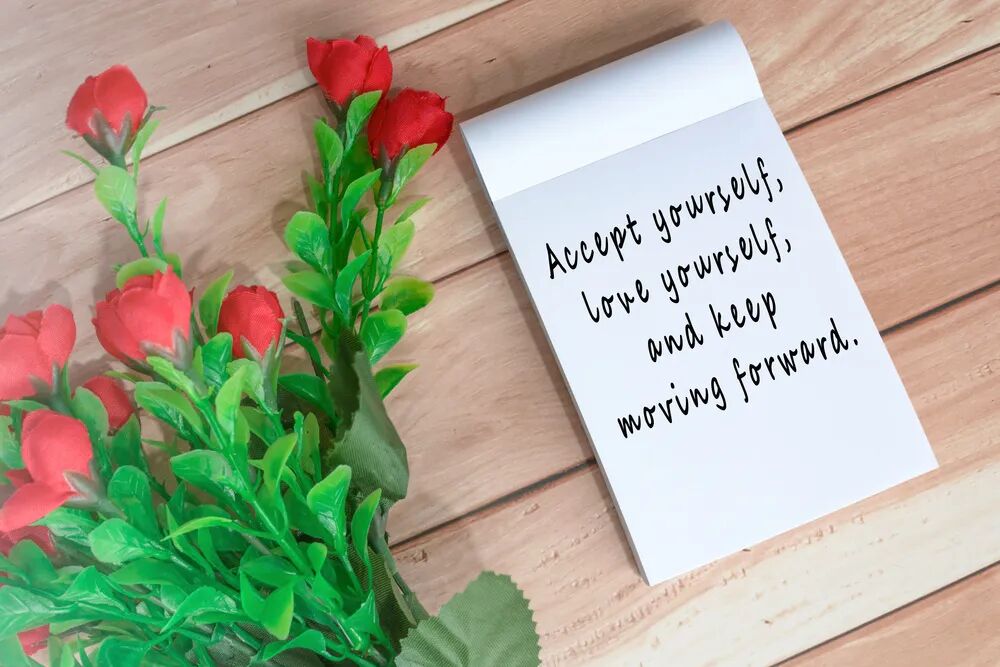 Accept yourself,
love yourself,
and keep
moving forward.